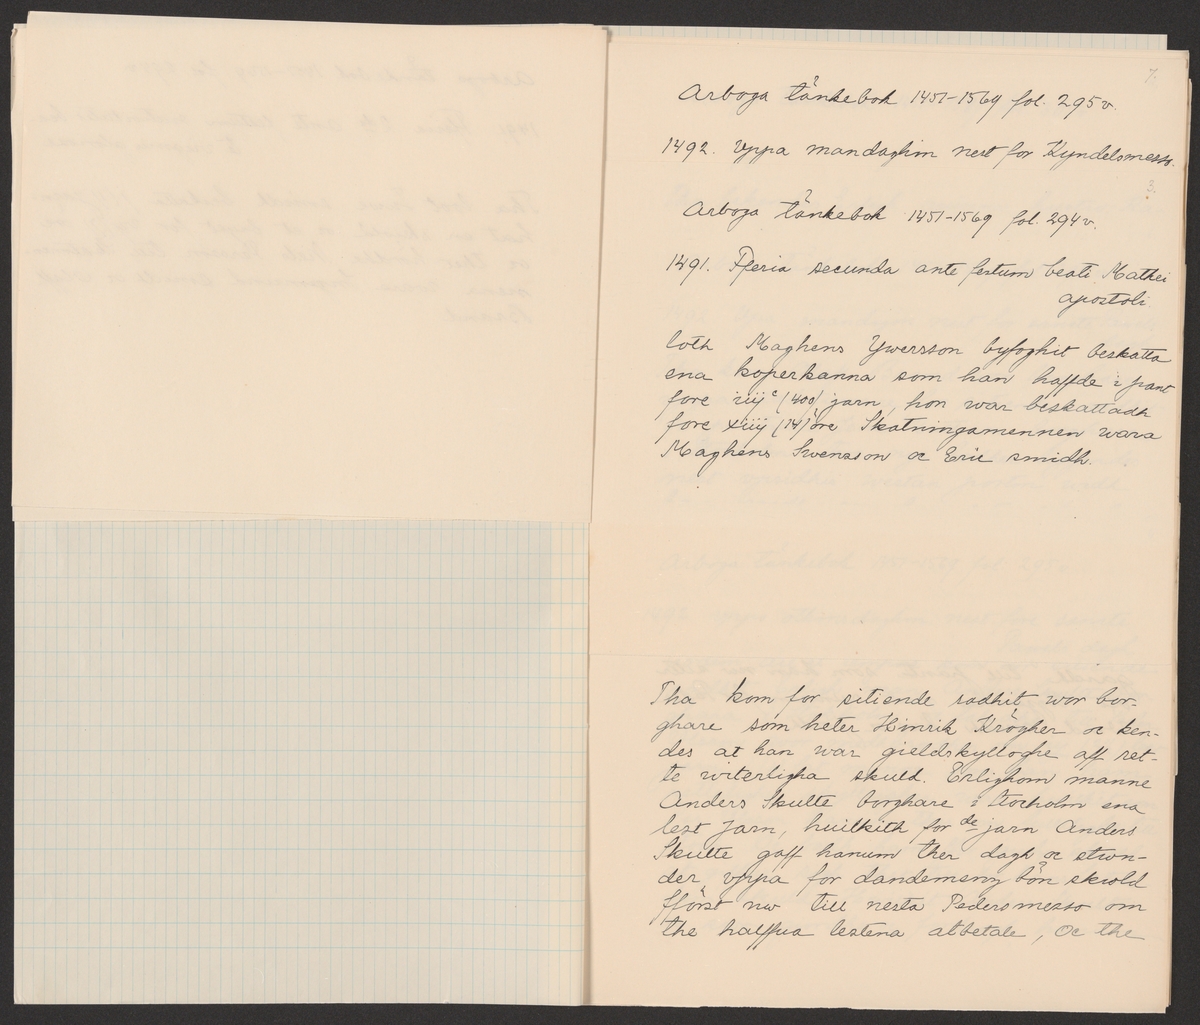 7.
Arboga tänkebok 1451-1569 fol. 295 v.
1492. Vppa mandaghin nest for Kyndelsmesso.
3.
Arboga tänkebok 1451-1569 fol. 294 v.
1491. Fferia secunda ante festum beati Mathei
apostoli.
loth Maghens Ywersson byfoghit beskatta
ena koperkanna som han haffde i pant
fore iiijc (400) jarn, hon war beskattadh
fore xiiij (14) öre Skatningamennen wara
Maghens Swensson oc Eric smidh.
Tha kom for sitiende radhit wor bor-
ghare som heter Hinrik Krögher oc ken-
des at han war gieldskylloghe aff ret-
te witerligha skuld. Erlighom manne
Anders Skulte borghare i Stocholm ena
lest Jarn, huilkith for de jarn Anders
Skulte gaff hanum ther dagh oc stwn-
der vppa for dandemenz bön skwld
fförst nw till nesta Pedersmesso om
the halffua lestena atbetale, Oc the